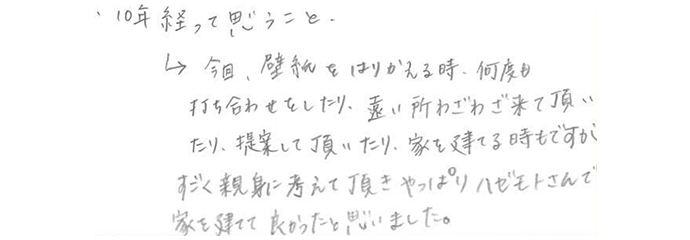 ・10年経って思うこと.
↳ 今回、壁紙をはりかえる時、何度も
打ち合わせをしたり、遠い所わざわざ来て頂い
たり、提案して頂いたり、家を建てる時もですが
すごく親身に考えて頂きやっぱりハゼモトさんで
家を建てて良かったと思いました。